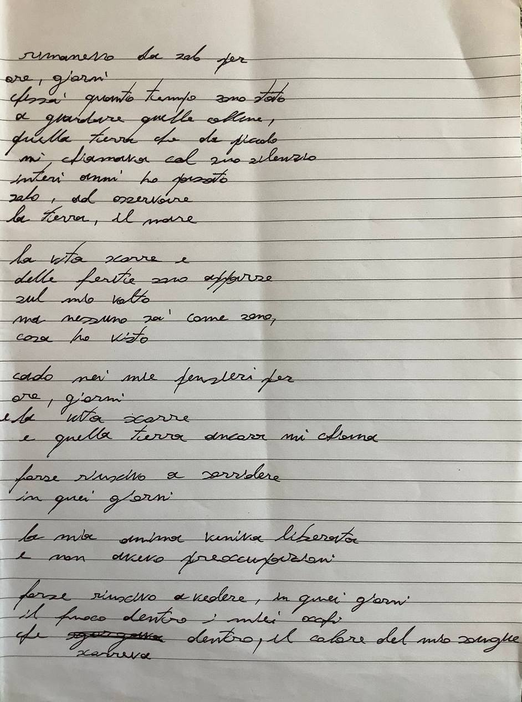 rimanevo da solo per
ore, giorni
chissa' quanto tempo sono stato
a guardare quelle colline,
quella terra che da piccolo
mi chiamava col suo silenzio
interi anni ho passato
solo, ad osservare
la terra, il mare
la vita scorre e
delle ferite sono apparse
sul mio volto
ma nessuno sa' come sono,
cosa ho visto
cado nei mie pensieri per
ore, giorni
e la vita scorre
e quella terra ancora mi chiama
forse riuscivo a sorridere
in quei giorni
la mia anima veniva liberata
e non avevo preoccupazioni
forse riuscivo a vedere, in quei giorni
il fuoco dentro i miei occhi
che dentro, il calore del mio sangue
scorreva